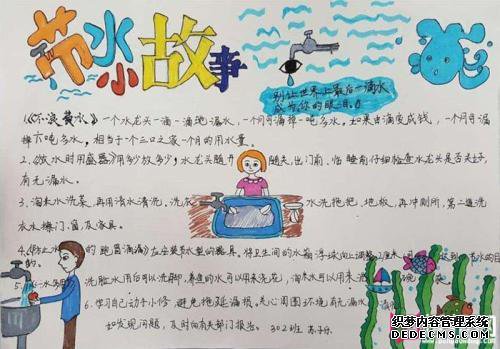 节水小故事
别让世界上最后一滴水
成为你的眼泪。
1.《不浪费水》一个水龙头一滴一滴地漏水，一个月可漏掉一吨多水。如果由滴变成线，一个月可漏
掉六吨多水，相当于一个三口之家一个月的用水量。
2.《放水时用盛器》用多少放多少；水龙头随开 随关，出门前、临睡前仔细检查水龙头是否关好，
有无漏水。
3.淘米水洗菜，再用清水清洗。洗衣 水洗拖把、地板，再冲厕所，第二道洗
衣水擦门、窗及家具。
的跑冒滴漏》在安装节水型的器具，将卫生间的水箱浮球向下调整2厘米
目的。
洗脸水用后可以洗脚，养鱼的水可以用来浇花，淘米水可以用来
6.学习自己动手小修，避免拖延漏损。关心周围环境有无漏水
如发现问题，及时向有关部门报告。 302班 苏子